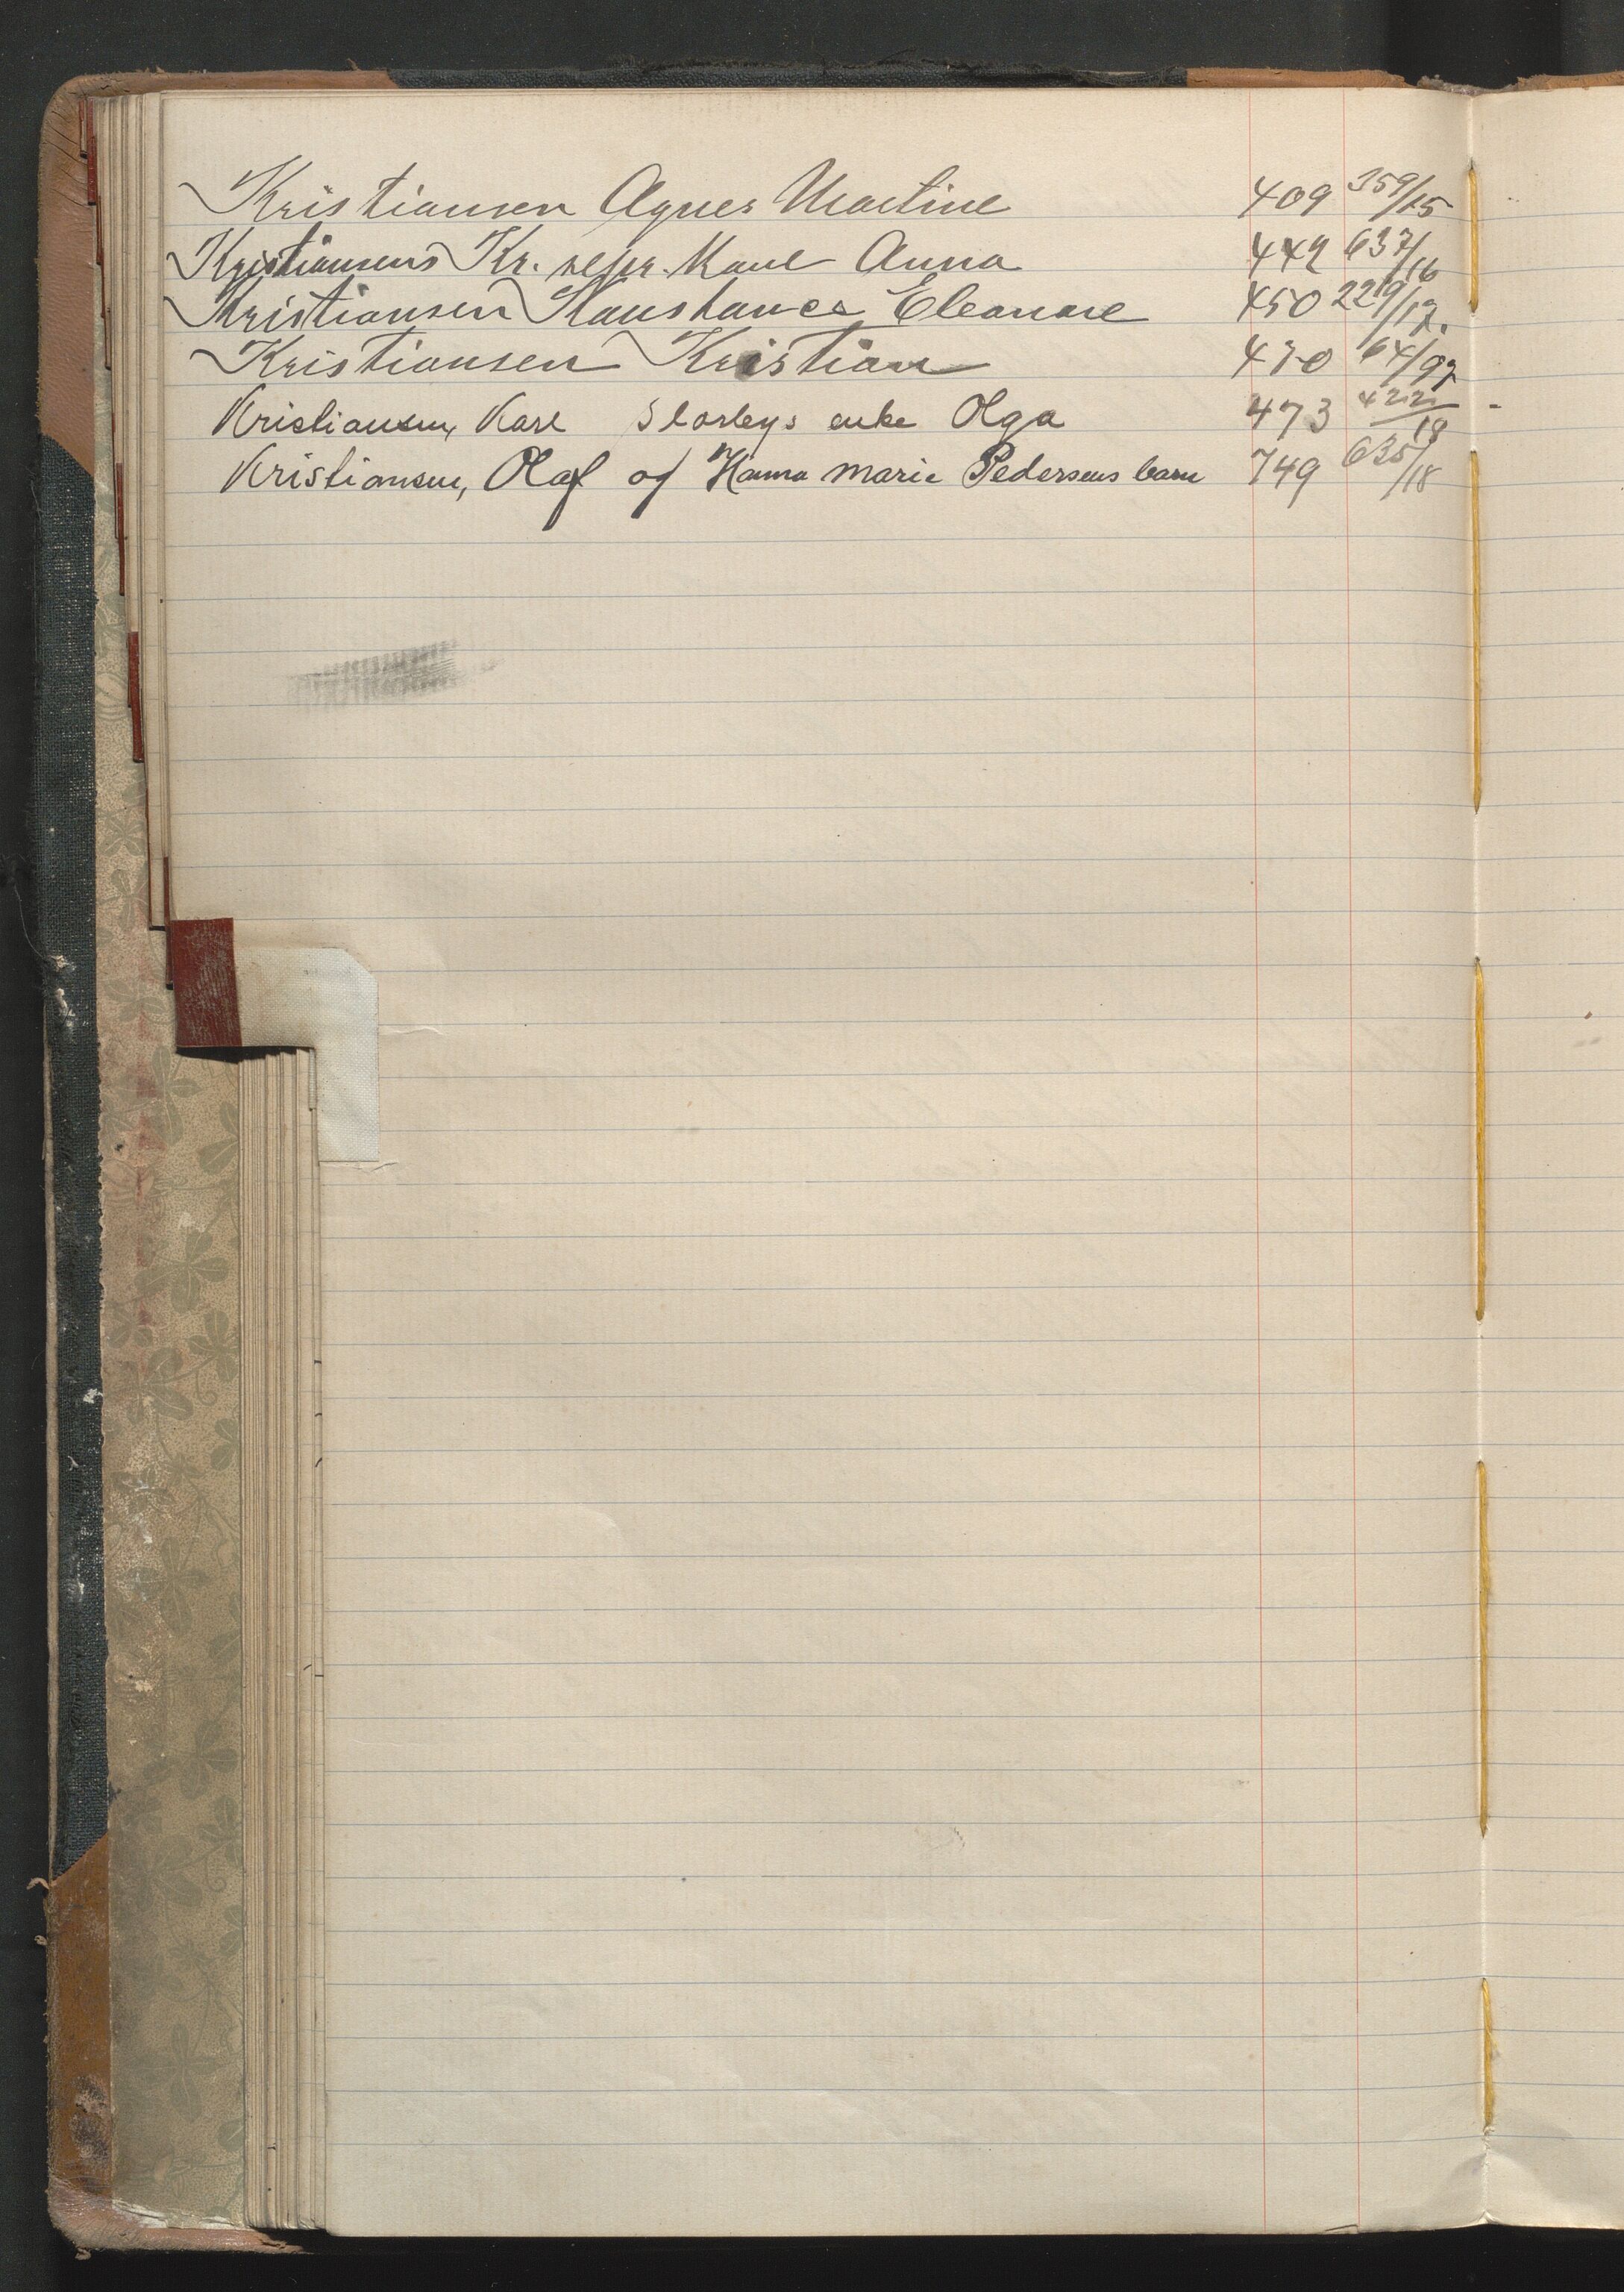 Kristiansen Agnes Martine 409 359/15
Kristiansens Kr. repr. Kone Anna 449 637/16
Kristiansen Konstance Eleonore 450 229/17.
Kristiansen Kristian 470 64/97
Kristiansen, Karl Storbys enke Olga 473 422/18
Kristiansen, Olaf og Hanna Marie Pedersens barn 749 635/18